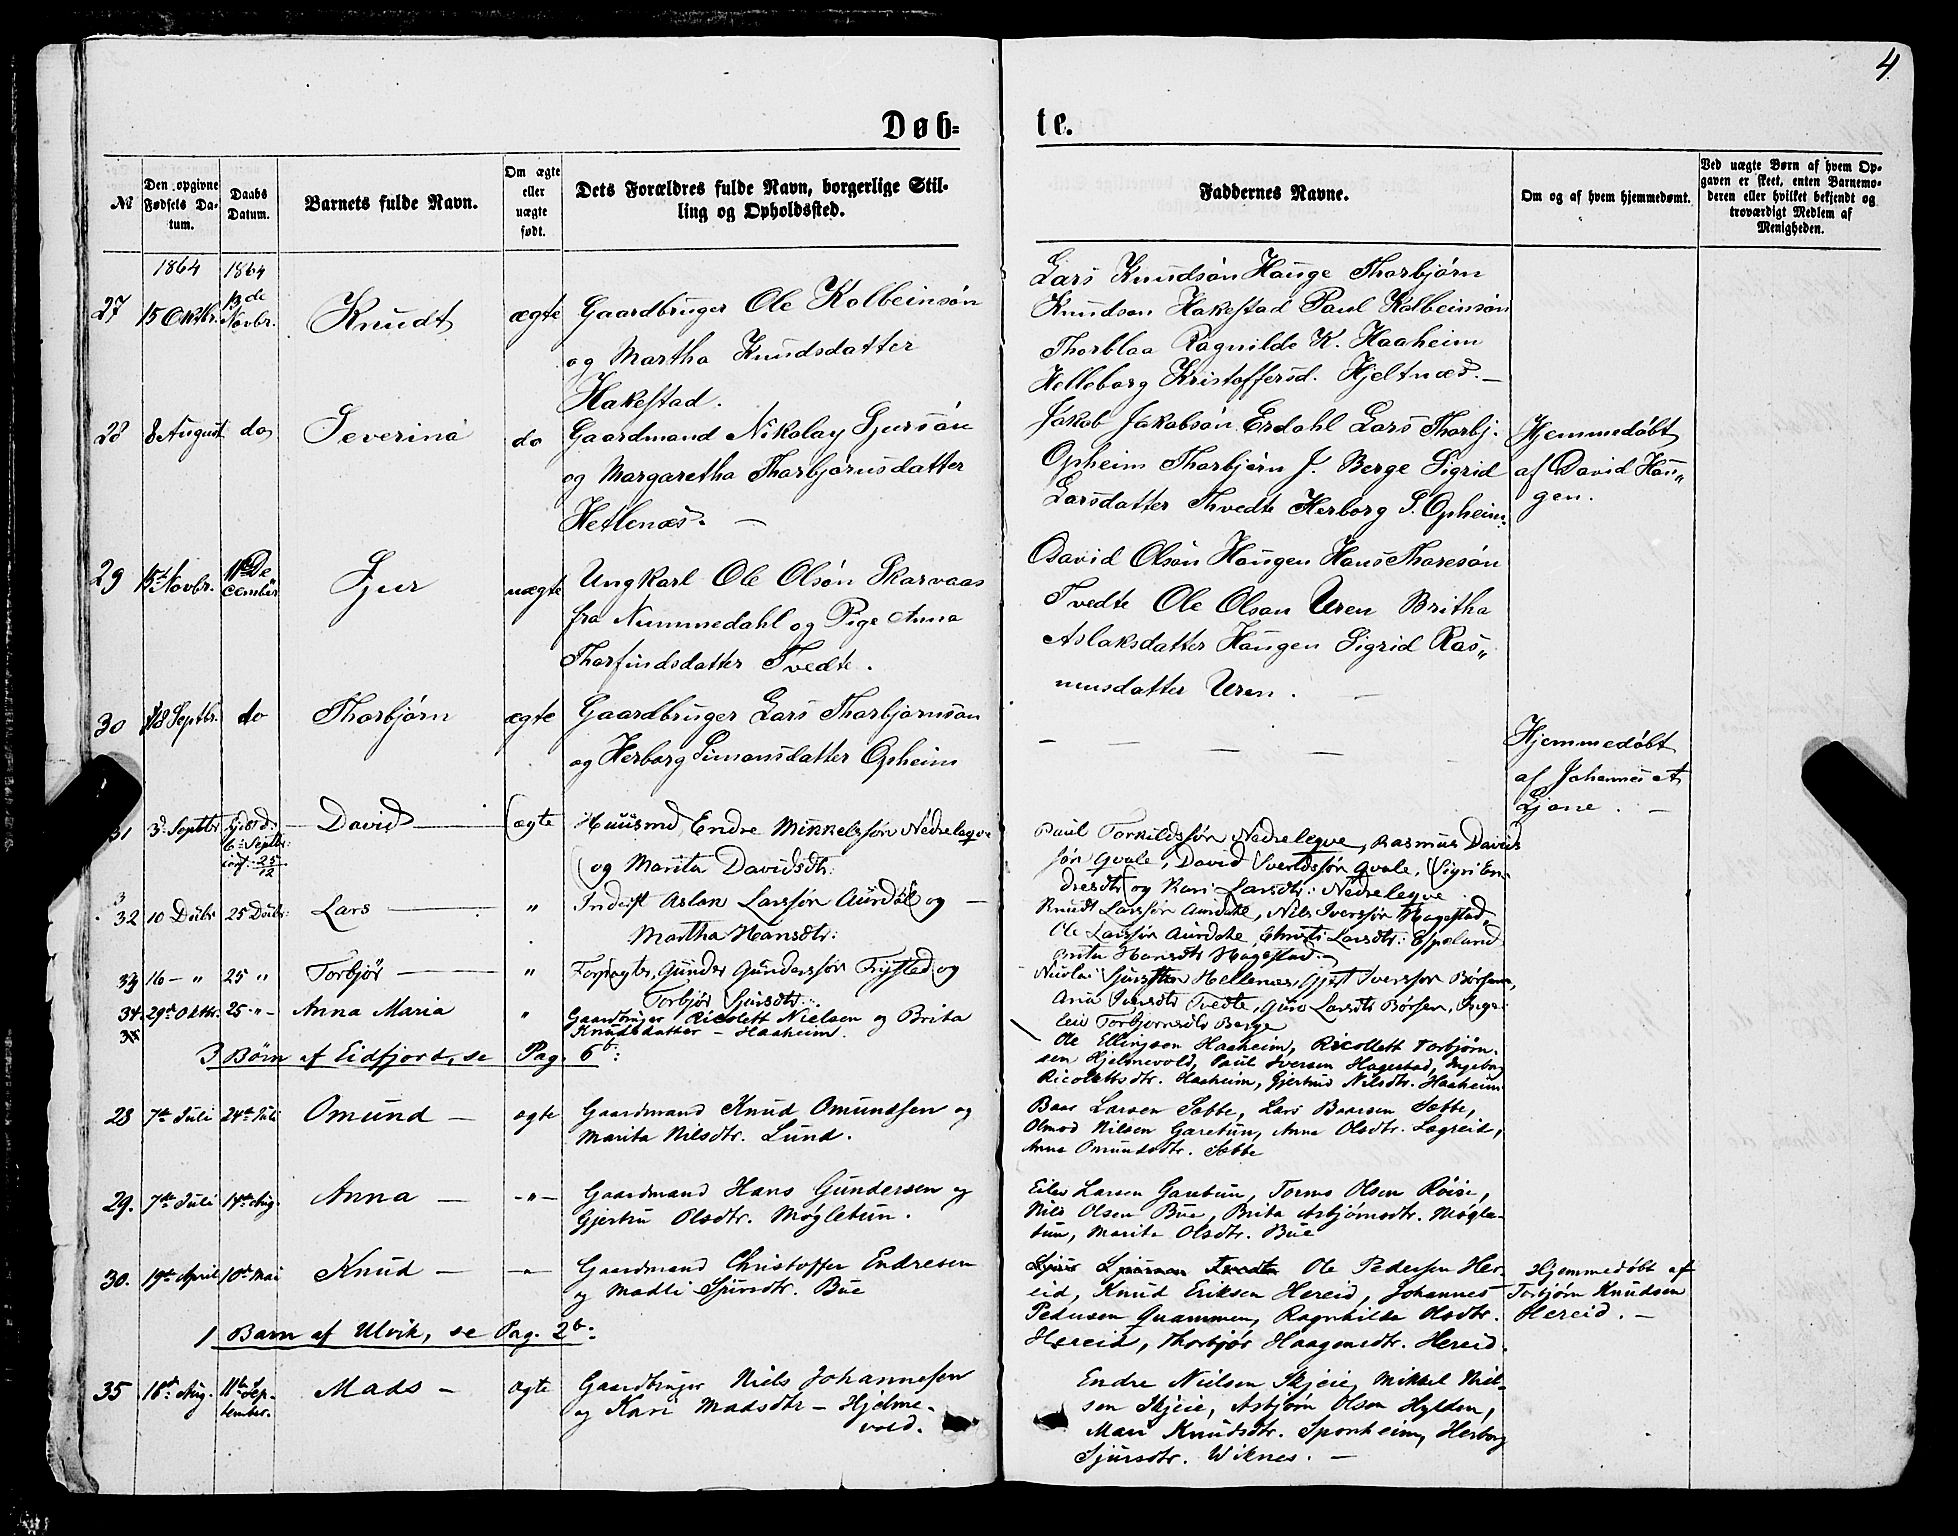 4
Døb-
te.
№
Den opgivne Fødsels Da-
tum.
Daabs
Datum.
Barnets fulde Navn.
Om ægte
eller
uægte
født.
Dets Forældres fulde Navn, borgerlige Stil-
ling og Opholdssted.
Faddernes Navne.
Om og af hvem hjemmedømt.
Ved uægte Børn af hvem Op-
gaven er skeet, enten Barnemo-
deren eller hvilket bekjendt og
troværdigt Medlem af
Menigheden.
1864 1864
27 15 Oktbr. 13de Novbr. Knudt ægte Gaardbruger Ole Kolbeinsøn
og Martha Knudsdatter
Hakestad.
Lars Knudsøn Hauge Thorbjørn
Knudsøn Hakestad Paul Kolbeinsøn
Thorblaa Ragnilde K. Haaheim
Helleborg Kristoffersd. Hjeltnæs. —
28 8 August do Severina do Gaardmand Nikolay Sjursøn
og Margaretha Thorbjørnsdatter
Hetlenæs. —
Jakob Jakobsøn Erdahl Lars Thorbj.
Opheim Thorbjørn J. Berge Sigrid
Larsdatter Thvedte Herborg S. Opheim.
Hjemmedøbt
af David Hau„
gen.
29 15 Novbr. 11te De
cember Sjur uægte Ungkarl Ole Olsøn Skarvaas
fra Nummedahl og Pige Anna
Thorfindsdatter Tvedte.
David Olsøn Haugen Hans Thoresøn
Tvedte Ole Olsøn Uren Britha
Aslaksdatter Haugen Sigrid Ras„
musdatter Uren. —
30 18 Septbr. do Thorbjørn ægte Gaardbruger Lars Thorbjørnsøn
og Herborg Simonsdatter Opheim
— — — —
Hjemmedøbt
af Johannes
Ljone. —
31 3 Septbr David ægte Huusmd Endre Mikkelssøn Nedrelegve
og Marita Davidsdtr:
Paul Torkildssøn Nedrelegve, Rasmus Davids
søn Qvale, David Qvale, Sigri En-
dresdtr og Kari Larsdtr: Nedrelegve
32 10 Debr 25 Debr: Lars — „ Inderst Aslak Larssøn Aurdal og —
Martha Hansdtr:
Knudt Larssøn, Nils Iverssøn Hagestad,
Ole Larssøn, Christi Larsdtr: Espeland
Brita Hansdtr Hagestad.
33 16 – „ 25 „ Torbjør — „ Gunder Gunderssøn og
Torbjør Sjursdtr:
Nicolai Hellenes, Gjest Iverssøn Børsem,
Tvedte, Guro Larsdtr Børsem, Inge-
leiv Torbjørnsdtr Berge
34. 29de Oktbr. 25 – „ – Anna Maria „ Gaardbruger Ricolett Nielsen og Brita
Knudsdatter — Haaheim.
Ole Ellingson Haaheim, Ricollett Torbjørn-
sen Hjelmevold, Paul Iversen Hagestad, Ingeborg
Ricolettsdtr. Haaheim, Gjertrud Nilsdtr. Haaheim
3 Børn af Eidfjord, se Pag. 6b:
28 7de Juli 24de Juli Omund — ægte Gaardmand Knud Omundsen og
Marita Nilsdtr. Lund.
Baar Larsen Sæbbe, Lars Baarsen Sæbbe,
Olmod Nilsen Garetun, Anna Olsdtr. Lægreid,
Anna Omundsdtr. Sæbbe
29. 7de Juli 14de Aug. Anna — – „ – Gaardmand Hans Gundersen og
Gjertru Olsdtr. Møgletun.
Eilev Larsen Garetun, Tormo Olsen Røise,
Nils Olsen Bue, Brita Asbjørnsdtr. Møgle-
tun, Marita Olsdtr. Bue
30. 19de April 10de Mai Knud — – „ – Gaardmand Christoffer Endresen
og Madli Sjursdtr. Bue
Sjur Sjursson Tvedte Ole Pedersen Her-
eid, Knud Eriksen Hereid, Johannes
Pedersen Quammen, Ragnhilda Olsdtr.
Hereid, Thorbjør Haagensdtr. Hereid.
Hjemmedøbt af
Torbjørn Knudsen
Hereid. —
1 Barn af Ulvik, se Pag. 2b:
35 18de Aug. 11te Sep-
tember. Mads — ægte Gaardbruger Niels Johannesen
og Kari Madsdtr — Hjelme-
vold.
Endre Nielsen Skjeie, Mikkel Niel-
sen Skjeie, Asbjørn Olsen Hylden,
Mari Knudsdtr. Sponheim, Herborg
Sjursdtr. Wiknes. —